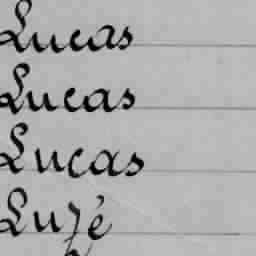 Lucas
Lucas
Lucas
Luzé